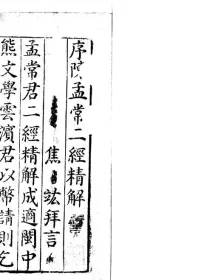 序阮孟常二經精解
焦竑拜言
孟常君二經精解成適閩中
熊文學雲濱君以幣請則乞